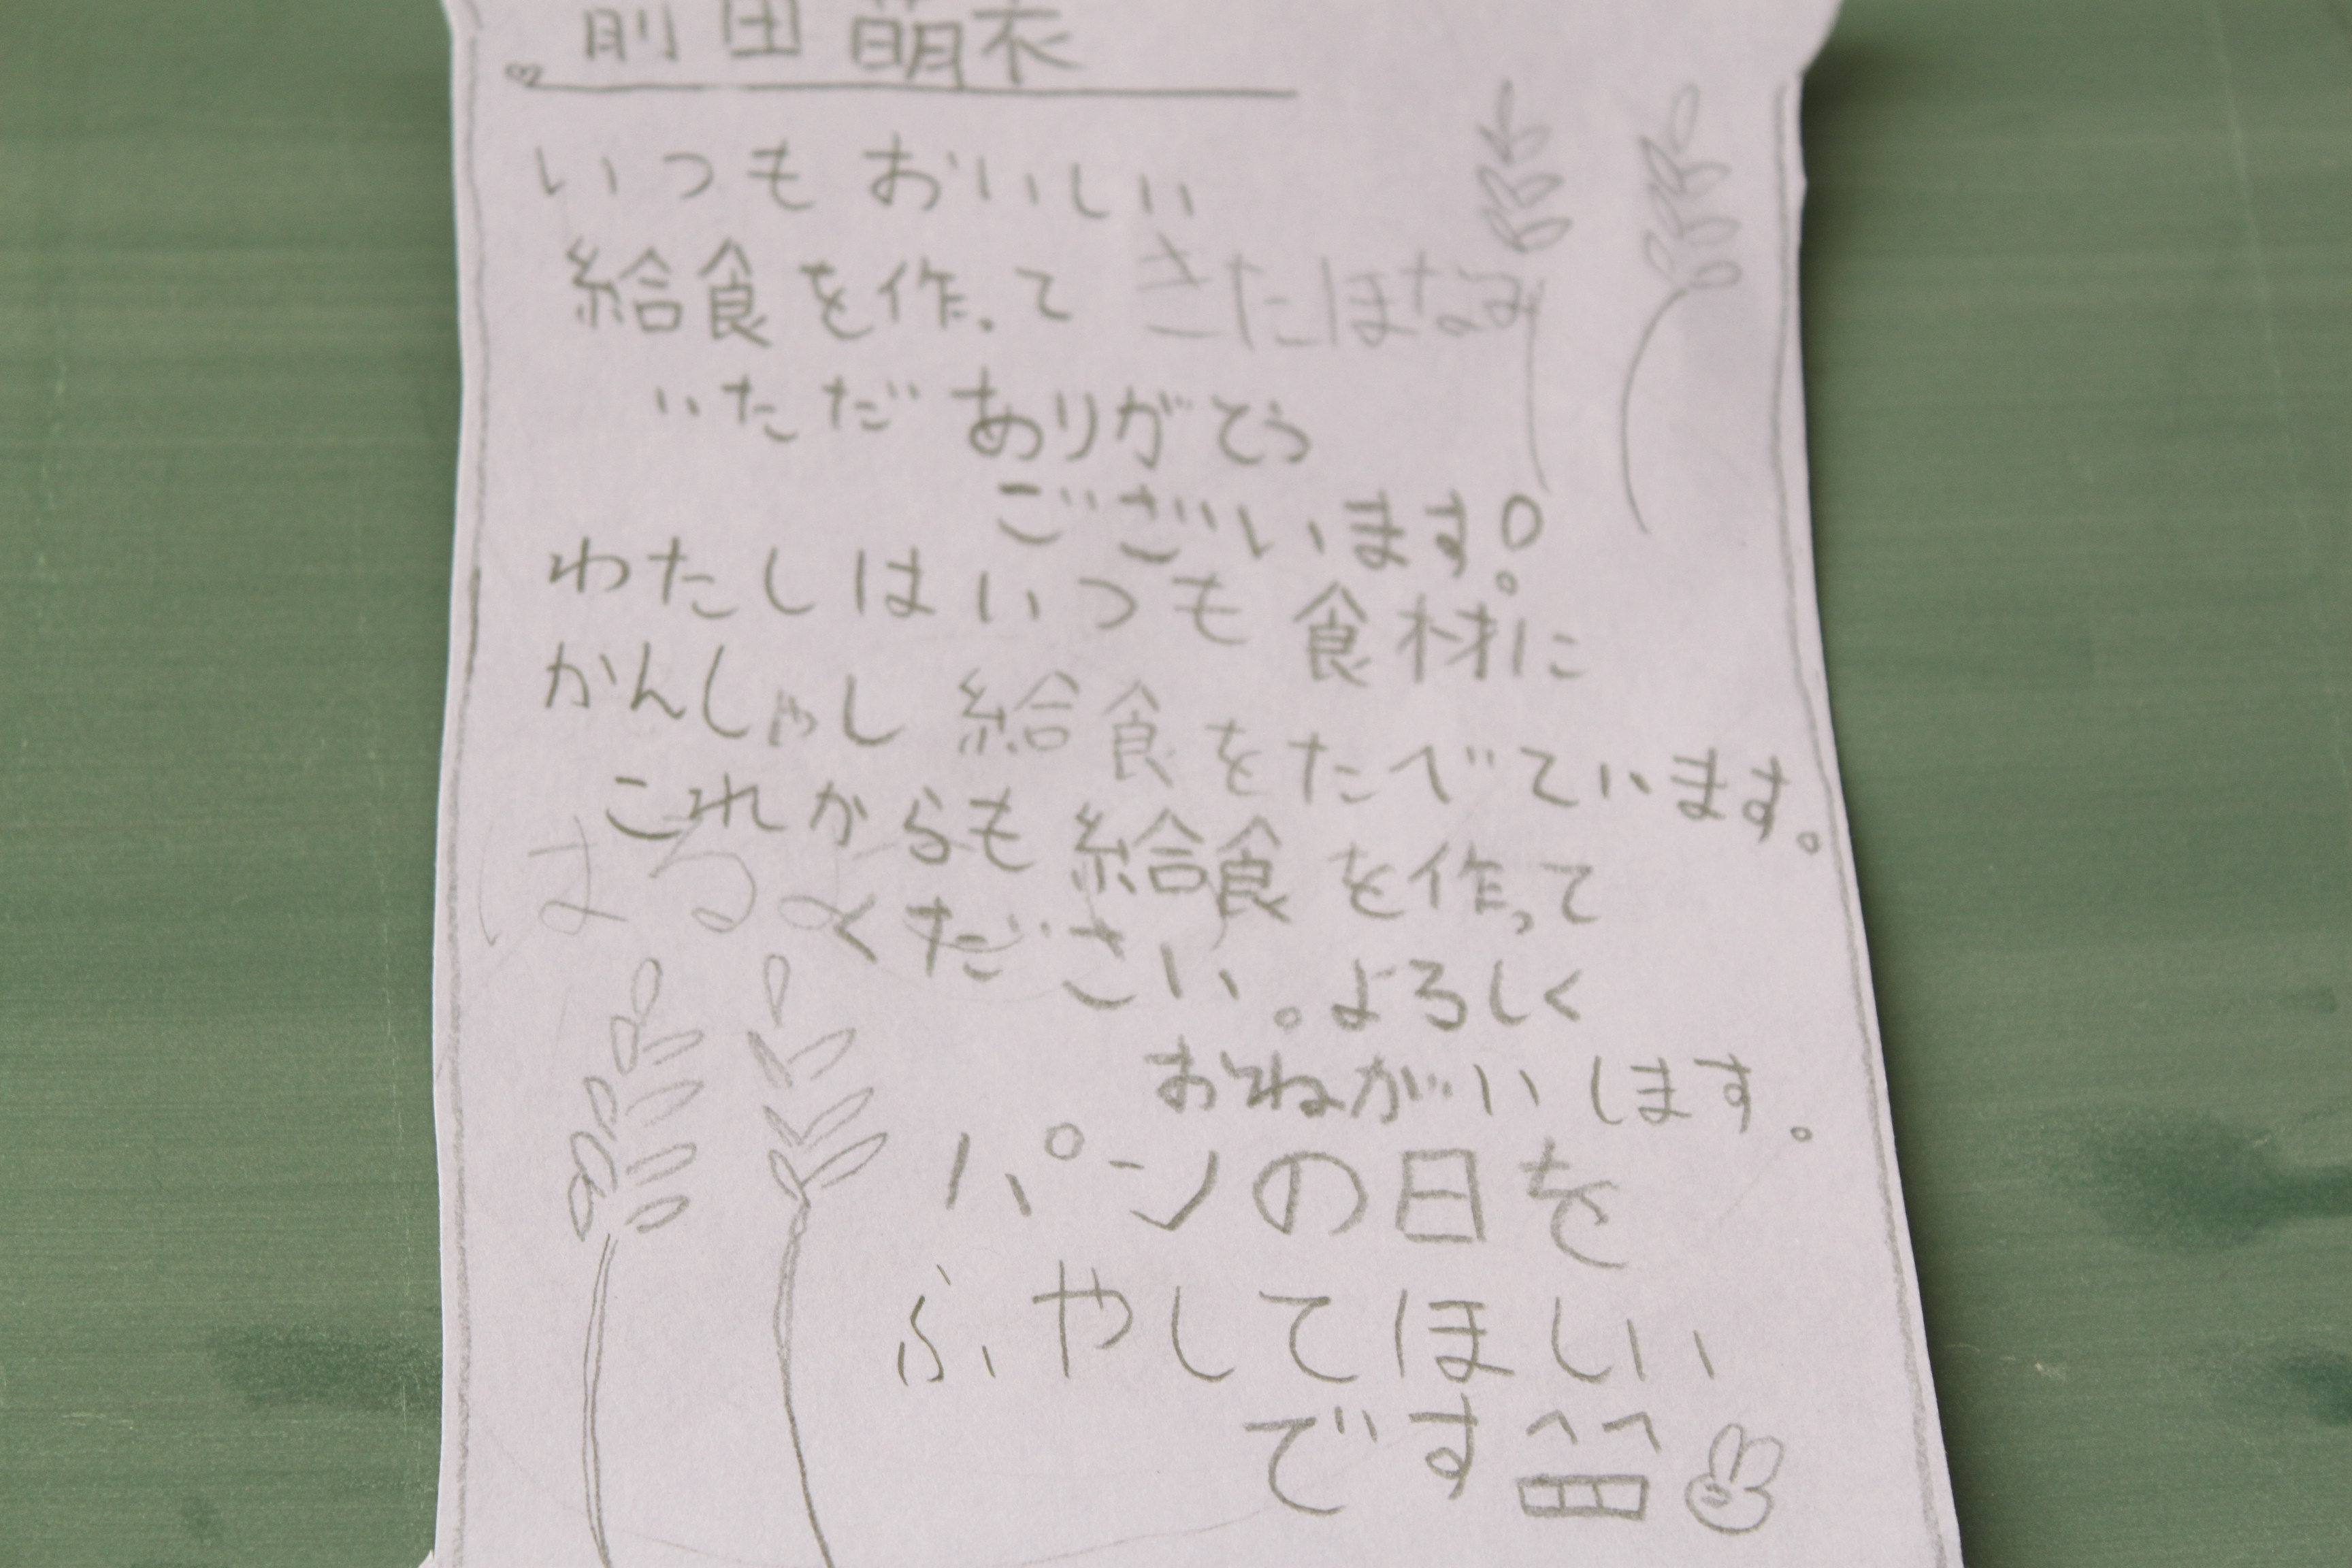 前田萌衣
いつもおいしい
給食を作って
きたほなみ
いただありがとう
ございます!
わたしはいつも食材に
かんしゃし給食をたべています。
これからも給食を作って
ください。よろしく
おねがいします。
パンの日を
ふやしてほしい
です